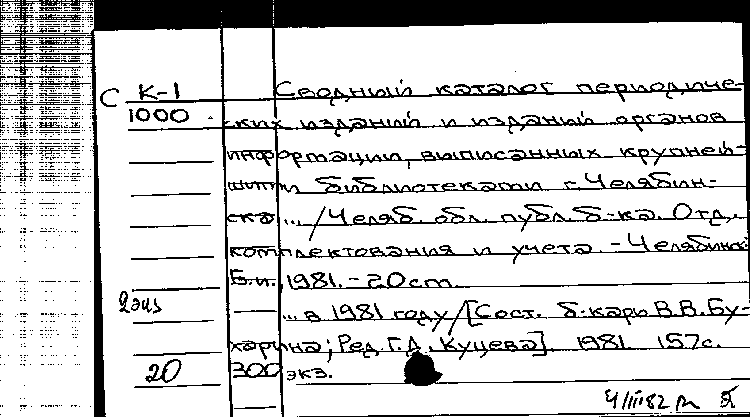 С К-1 Сводный каталог периодиче-
1000 ских изданий и изданий органов
информации, выписанных крупней-
шими библиотеками г. Челябин-
ска ... / Челяб. обл. публ. б-ка. Отд.
комплектования и учета. - Челябинск:
Б.и., 1981. - 20 см.
2 экз ... в 1981 году / [Сост. б-карь В.В. Бу-
харина; Ред. Г.Д. Куцева]. 1981. 157с.
20 300 экз.
4/III 82